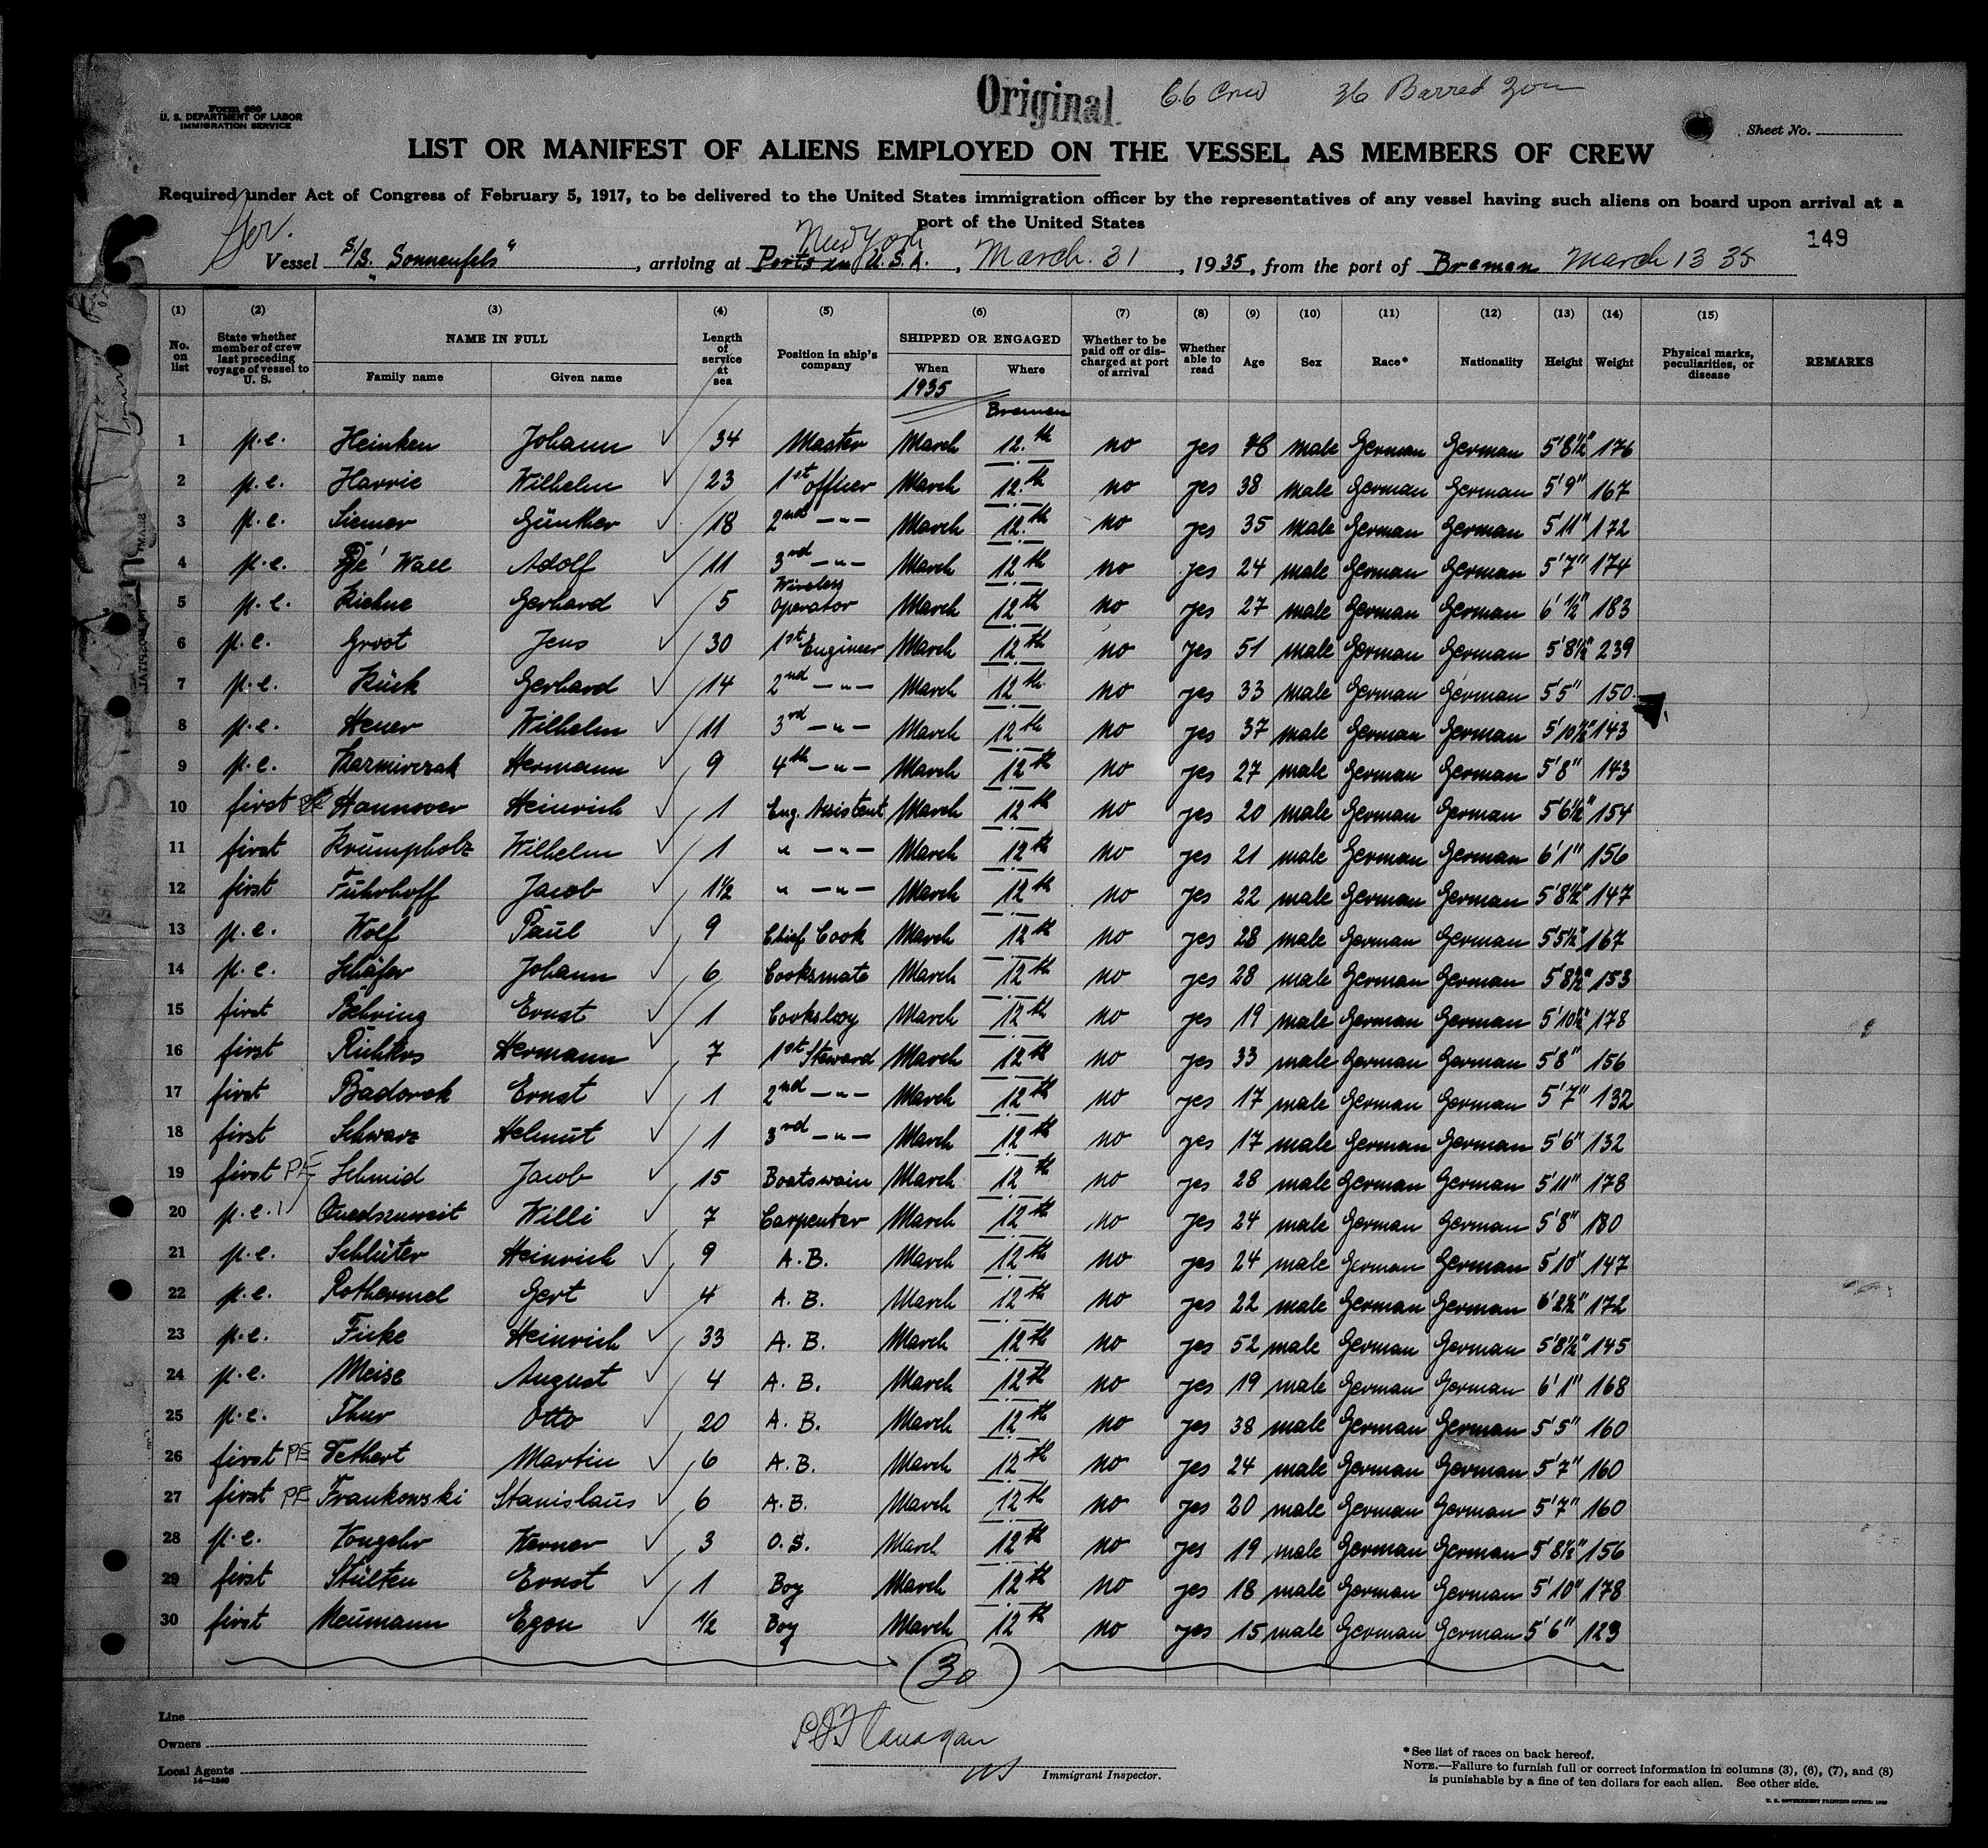 Original
66 Crew 36 Barred Zone
Form 680
U. S. DEPARTMENT OF LABOR
IMMIGRATION SERVICE
Sheet No.
LIST OR MANIFEST OF ALIENS EMPLOYED ON THE VESSEL AS MEMBERS OF CREW
Required under Act of Congress of February 5, 1917, to be delivered to the United States immigration officer by the representatives of any vessel having such aliens on board upon arrival at a
port of the United States
Ger.
149
New York
Vessel S/S. "Sonnenfels", arriving at Ports in U.S.A., March 31, 1935, from the port of Bremen March 13 35
(1) (2) (3) (4) (5) (6) (7) (8) (9) (10) (11) (12) (13) (14) (15)
No. on list
State whether member of crew last preceding voyage of vessel to U. S.
NAME IN FULL
Family name Given name
Length of service at sea
Position in ship's company
SHIPPED OR ENGAGED
When Where
Whether to be paid off or discharged at port of arrival
Whether able to read
Age Sex Race* Nationality Height Weight
Physical marks, peculiarities, or disease
REMARKS
1935
Bremen
1 p.e. Heinken Johann 34 Master March 12.th no yes 48 male German German 5'8½" 176
2 p.e. Harrie Wilhelm 23 1st officer March 12.th no yes 38 male German German 5'9" 167
3 p.e. Siemer Günther 18 2nd -"- March 12.th no yes 35 male German German 5'11" 172
4 p.e. Wall Adolf 11 3rd -"- March 12th no yes 24 male German German 5'7" 174
5 p.e. Kiehne Gerhard 5 Wireless operator March 12th no yes 27 male German German 6'½" 183
6 p.e. Groot Jens 30 1st Engineer March 12th no yes 51 male German German 5'8½" 239
7 p.e. Kück Gerhard 14 2nd -"- March 12th no yes 33 male German German 5'5" 150
8 p.e. Heuer Wilhelm 11 3rd -"- March 12th no yes 37 male German German 5'10½" 143
9 p.e. Kazmirczak Hermann 9 4th -"- March 12th no yes 27 male German German 5'8" 143
10 first Hannover Heinrich 1 Eng. Assistent March 12th no yes 20 male German German 5'6½" 154
11 first Krumpholz Wilhelm 1 " -"- March 12th no yes 21 male German German 6'1" 156
12 first Fuhrhoff Jacob 1½ " -"- March 12th no yes 22 male German German 5'8½" 147
13 p.e. Wolf Paul 9 Chief Cook March 12th no yes 28 male German German 5'5½" 167
14 p.e. Schäfer Johann 6 Cooksmate March 12th no yes 28 male German German 5'8½" 153
15 first Behring Ernst 1 Cooksboy March 12th no yes 19 male German German 5'10½" 178
16 first Richters Hermann 7 1st Steward March 12th no yes 33 male German German 5'8" 156
17 first Badorek Ernst 1 2nd -"- March 12th no yes 17 male German German 5'7" 132
18 first Schwarz Helmut 1 3rd -"- March 12th no yes 17 male German German 5'6" 132
19 first PE Schmid Jacob 15 Boatswain March 12th no yes 28 male German German 5'11" 178
20 p.e. Quedszuweit Willi 7 Carpenter March 12th no yes 24 male German German 5'8" 180
21 p.e. Schlüter Heinrich 9 A.B. March 12th no yes 24 male German German 5'10" 147
22 p.e. Rothermel Gert 4 A.B. March 12th no yes 22 male German German 6'2½" 172
23 p.e. Ficke Heinrich 33 A.B. March 12th no yes 52 male German German 5'8½" 145
24 p.e. Meise August 4 A.B. March 12th no yes 19 male German German 6'1" 168
25 p.e. Thur Otto 20 A.B. March 12th no yes 38 male German German 5'5" 160
26 first PE Tethert Martin 6 A.B. March 12th no yes 24 male German German 5'7" 160
27 first PE Frankowski Stanislaus 6 A.B. March 12th no yes 20 male German German 5'7" 160
28 p.e. Vongehr Werner 3 O.S. March 12th no yes 19 male German German 5'8½" 156
29 first Stülten Ernst 1 Boy March 12th no yes 18 male German German 5'10" 178
30 first Neumann Egon ½ Boy March 12th no yes 15 male German German 5'6" 123
(30)
Line
Owners
Local Agents
14—1240
P J Flanagan
Immigrant Inspector.
*See list of races on back hereof.
NOTE.—Failure to furnish full or correct information in columns (3), (6), (7), and (8)
is punishable by a fine of ten dollars for each alien. See other side.
U. S. GOVERNMENT PRINTING OFFICE: